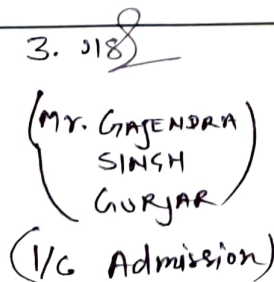 3.
(Mr. GAJENDRA
SINGH
GURJAR)
(I/C Admission)